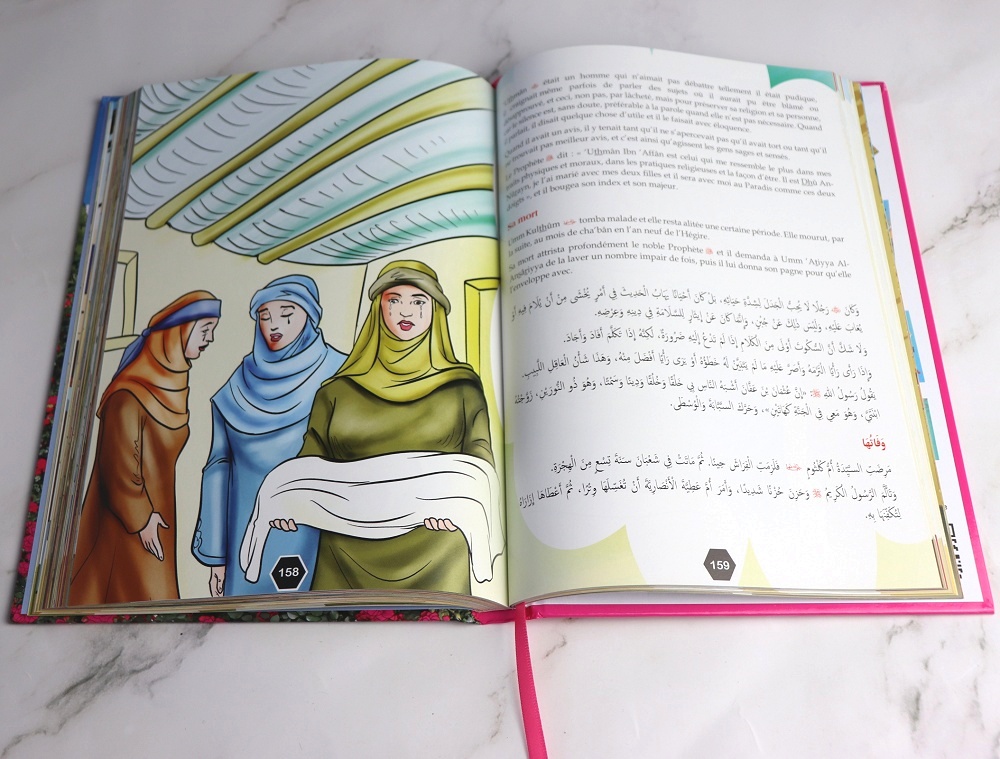 était un homme qui n'aimait pas débattre tellement il était pudique,
craignait même parfois de parler des sujets où il aurait pu être blâmé ou
désapprouvé, et ceci, non pas, par lâcheté, mais pour préserver sa religion et sa personne,
car le silence est, sans doute, préférable à la parole quand elle n'est pas nécessaire. Quand
il parlait, il disait quelque chose d'utile et il le faisait avec éloquence.
Quand il avait un avis, il y tenait tant qu'il ne s'apercevait pas qu'il avait tort ou tant qu'il
ne trouvait pas meilleur avis, et c'est ainsi qu'agissent les gens sages et sensés.
Le Prophète ﷺ dit : « 'Uthmân Ibn 'Affân est celui qui me ressemble le plus dans mes
traits physiques et moraux, dans les pratiques religieuses et la façon d'être. Il est Dhû An-
Nûrayn, je l'ai marié avec mes deux filles et il sera avec moi au Paradis comme ces deux
doigts », et il bougea son index et son majeur.
Sa mort
Umm Kulthûm tomba malade et elle resta alitée une certaine période. Elle mourut, par
la suite, au mois de cha'bân en l'an neuf de l'Hégire.
Sa mort attrista profondément le noble Prophète ﷺ et il demanda à Umm 'Atiyya Al-
Ansâriyya de la laver un nombre impair de fois, puis il lui donna son pagne pour qu'elle
l'enveloppe avec.
وَكَانَ رَجُلًا لَا يُحِبُّ الْجَدَلَ لِشِدَّةِ حَيَائِهِ، بَلْ كَانَ أَحْيَانًا يَهَابُ الْحَدِيثَ فِي أَمْرٍ يَخْشَى مِنْ أَنْ يُلَامَ فِيهِ أَوْ
يُعَابَ عَلَيْهِ، وَلَيْسَ ذَلِكَ عَنْ جُبْنٍ، وَإِنَّمَا كَانَ عَنْ إِيثَارٍ لِلسَّلَامَةِ فِي دِينِهِ وَعِرْضِهِ.
وَلَا شَكَّ أَنَّ السُّكُوتَ أَوْلَى مِنَ الْكَلَامِ إِذَا لَمْ تَدْعُ إِلَيْهِ ضَرُورَةٌ، لَكِنَّهُ إِذَا تَكَلَّمَ أَفَادَ وَأَجَادَ.
وَإِذَا رَأَى رَأْيًا الْتَزَمَهُ وَأَصَرَّ عَلَيْهِ مَا لَمْ يَتَبَيَّنْ لَهُ خَطَؤُهُ أَوْ يَرَى رَأْيًا أَفْضَلَ مِنْهُ، وَهَذَا شَأْنُ الْعَاقِلِ اللَّبِيبِ.
يَقُولُ رَسُولُ اللهِ ﷺ: «إِنَّ عُثْمَانَ بْنَ عَفَّانَ أَشْبَهُ النَّاسِ بِي خَلْقًا وَخُلُقًا وَدِينًا وَسَمْتًا، وَهُوَ ذُو النُّورَيْنِ، زَوَّجْتُهُ
ابْنَتَيَّ، وَهُوَ مَعِي فِي الْجَنَّةِ كَهَاتَيْنِ»، وَحَرَّكَ السَّبَّابَةَ وَالْوُسْطَى.
وَفَاتُهَا
مَرِضَتِ السَّيِّدَةُ أُمُّ كُلْثُومٍ فَلَزِمَتِ الْفِرَاشَ حِينًا، ثُمَّ مَاتَتْ فِي شَعْبَانَ سَنَةَ تِسْعٍ مِنَ الْهِجْرَةِ.
وَتَأَلَّمَ الرَّسُولُ الْكَرِيمُ ﷺ وَحَزِنَ حُزْنًا شَدِيدًا، وَأَمَرَ أُمَّ عَطِيَّةَ الْأَنْصَارِيَّةَ أَنْ تُغَسِّلَهَا وِتْرًا، ثُمَّ أَعْطَاهَا إِزَارَهُ
لِتُكَفِّنَهَا بِهِ.
158
159